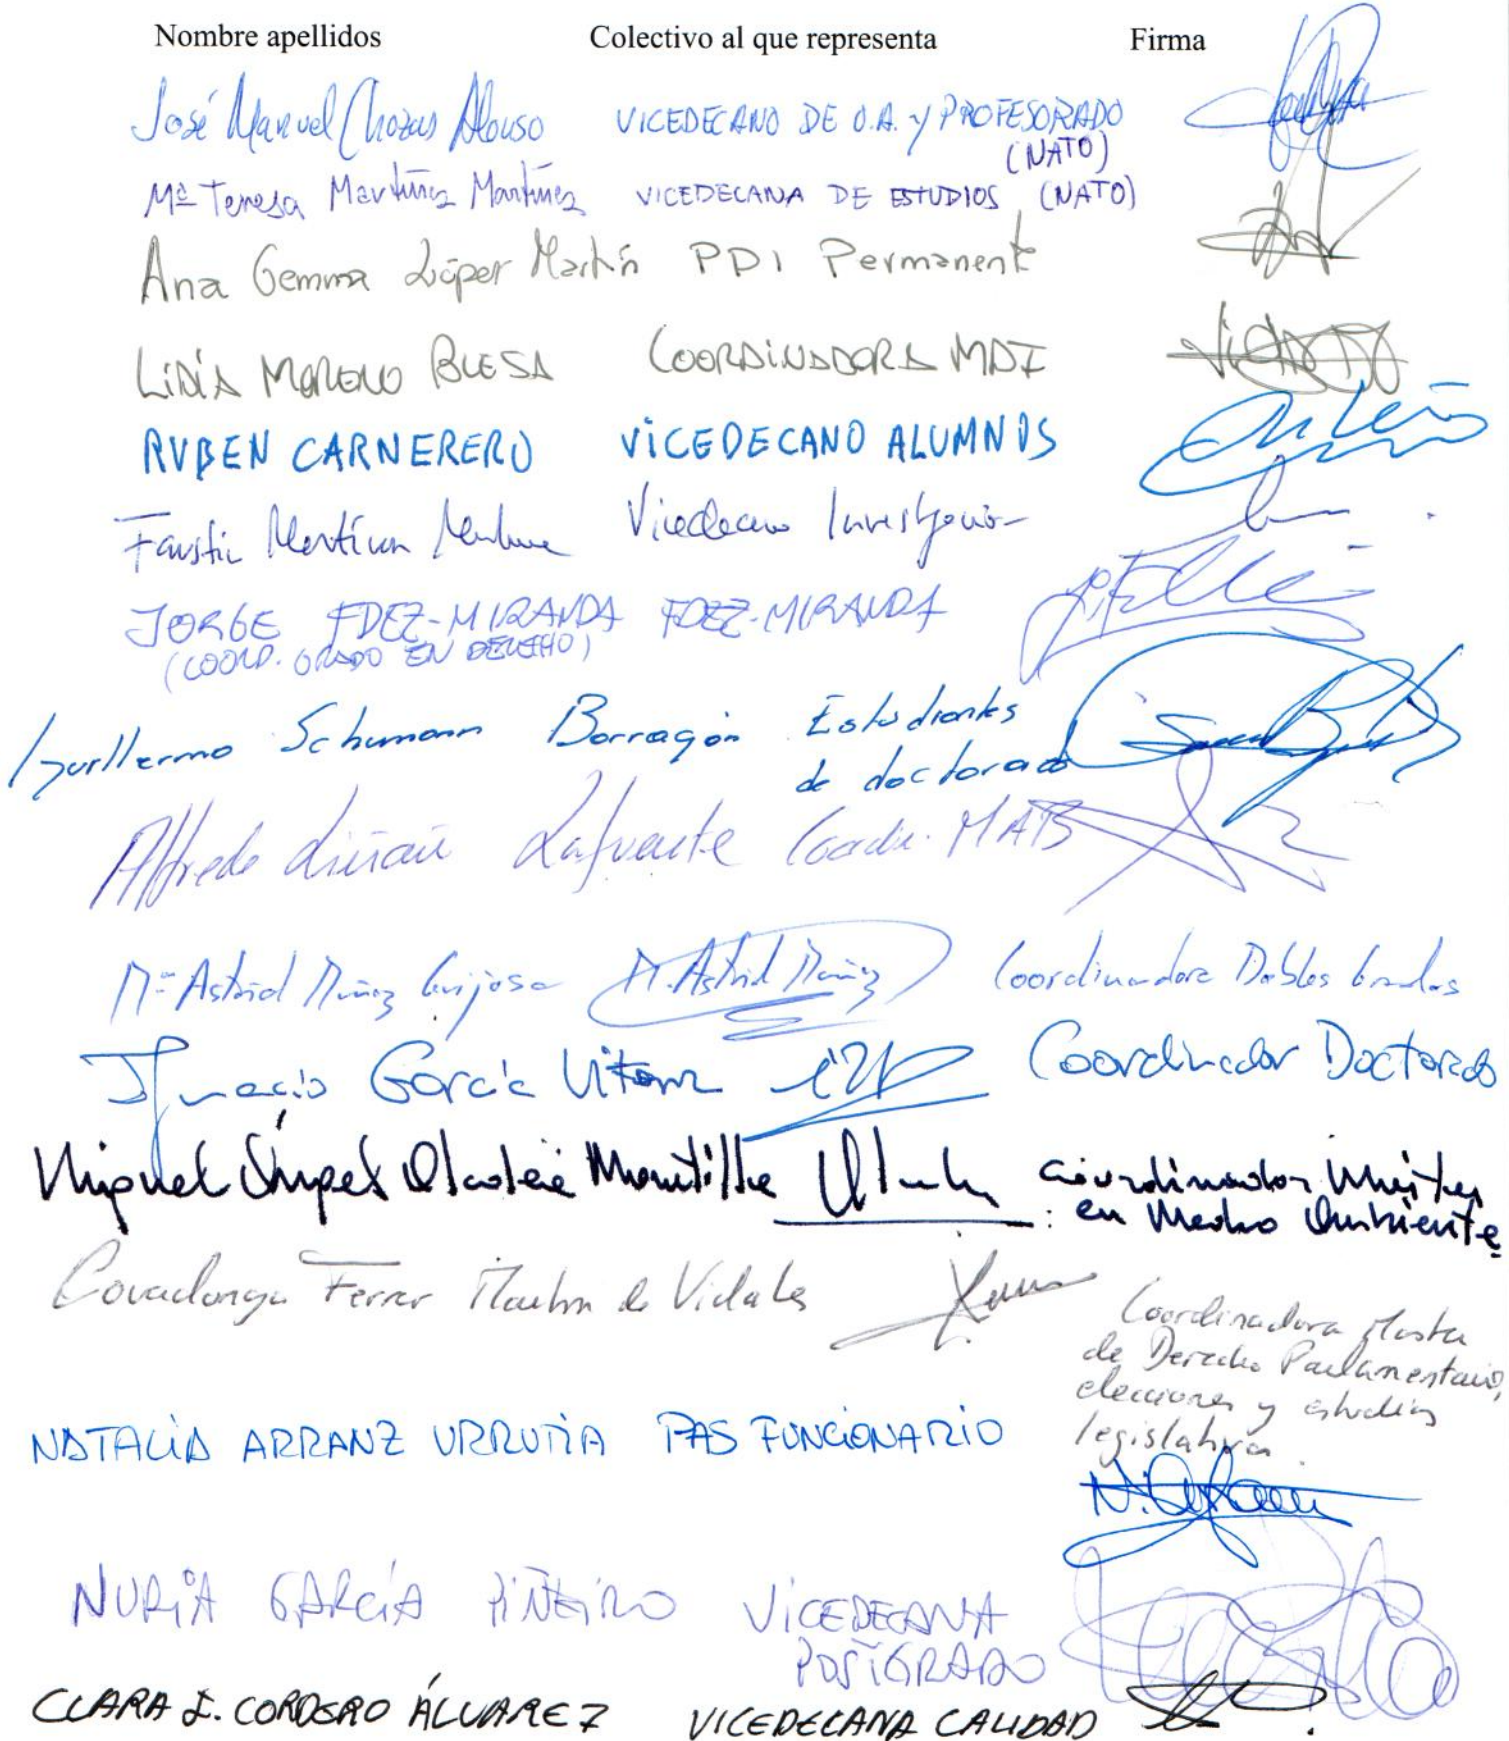 Nombre apellidos Colectivo al que representa Firma
José Manuel Chozas Alonso VICEDECANO DE O.A. y PROFESORADO
(NATO)
Mª Teresa Martínez Martínez VICEDECANA DE ESTUDIOS (NATO)
Ana Gemma López Martín PDI Permanente
LIDIA MORENO BLESA COORDINADORA MDI
RUBEN CARNERERO VICEDECANO ALUMNOS
Vicedecano Investigación
JORGE FDEZ-MIRANDA FDEZ-MIRANDA
(COORD. GRADO EN DERECHO)
Guillermo Schumann Barragán Estudiantes
de doctorado
Alfredo Liñán Lafuente Coordin. MATB
Mª Astrid Muñoz Guijosa M. Astrid Muñoz Coordinadora Dobles Grados
Ignacio García Vitoria Coordinador Doctorado
Miguel Ángel Montilla Coordinador Máster
en Medio Ambiente
Covadonga Ferrer Martín de Vidales
Coordinadora Master
de Derecho Parlamentario,
elecciones y estudios
legislativos
NATALIA ARRANZ URRUTIA PAS FUNCIONARIO
NURIA GARCÍA PIÑEIRO VICEDECANA
POSTGRADO
CLARA I. CORDERO ÁLVAREZ VICEDECANA CALIDAD